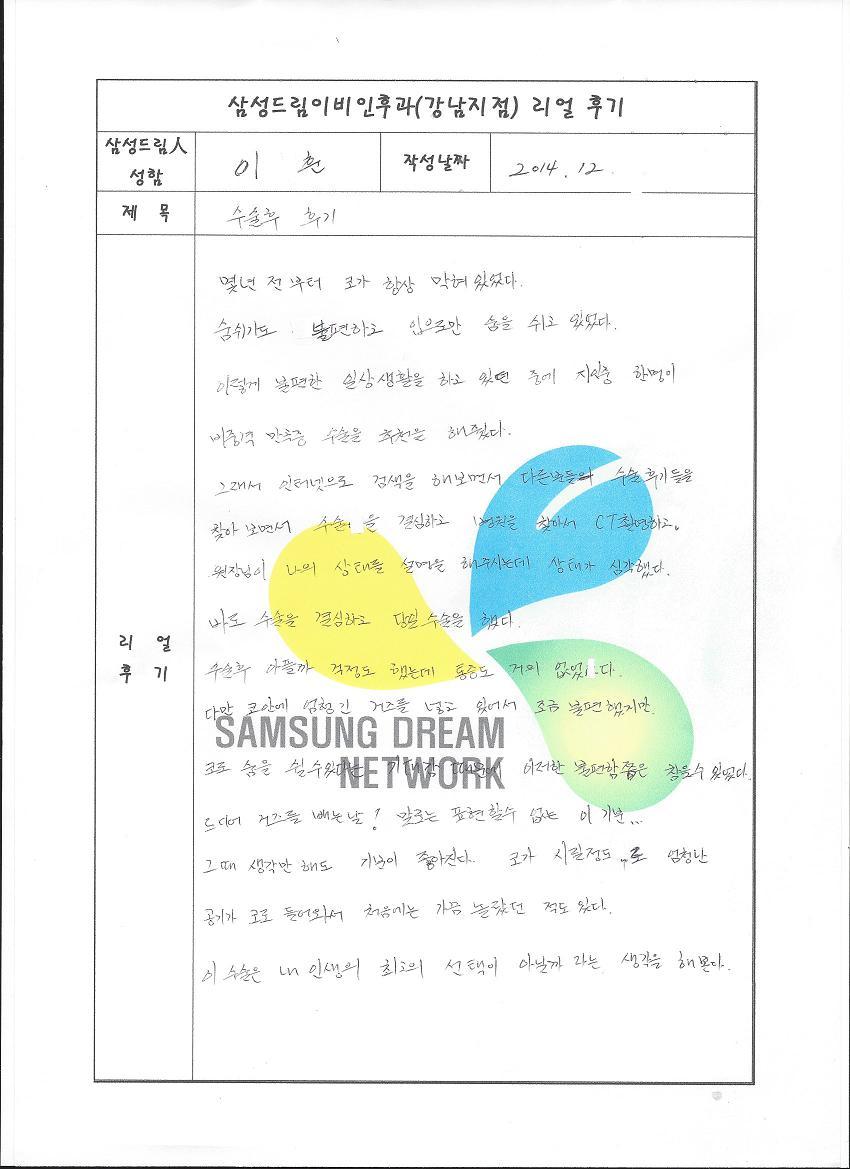 삼성드림이비인후과(강남지점) 리얼 후기
삼성드림人 성함
이 훤
작성날짜
2014. 12.
제 목
수술후 후기
리 얼 후 기
몇년 전부터 코가 항상 막혀 있었다.
숨쉬기도 불편하고 입으로만 숨을 쉬고 있었다.
이렇게 불편한 일상생활을 하고 있던 중에 지인중 한명이
비중격 만곡증 수술을 추천을 해줬다.
그래서 인터넷으로 검색을 해보면서 다른분들의 수술후기들을
찾아 보면서 수술을 결심하고 병원을 찾아서 CT촬영하고,
원장님이 나의 상태를 설명을 해주시는데 상태가 심각했다.
바로 수술을 결심하고 당일 수술을 했다.
수술후 아플까 걱정도 했는데 통증도 거의 없었다.
다만 코안에 엄청 긴 거즈를 넣고 있어서 조금 불편했지만,
SAMSUNG DREAM
NETWORK
코로 숨을 쉴수있다는 기대감 때문에 이러한 불편함쯤은 참을수 있었다.
드디어 거즈를 빼는날! 말로는 표현할수 없는 이 기분...
그때 생각만 해도 기분이 좋아진다. 코가 시릴정도로 엄청난
공기가 코로 들어와서 처음에는 가끔 놀랐던 적도 있다.
이 수술은 내 인생의 최고의 선택이 아닐까 라는 생각을 해본다.